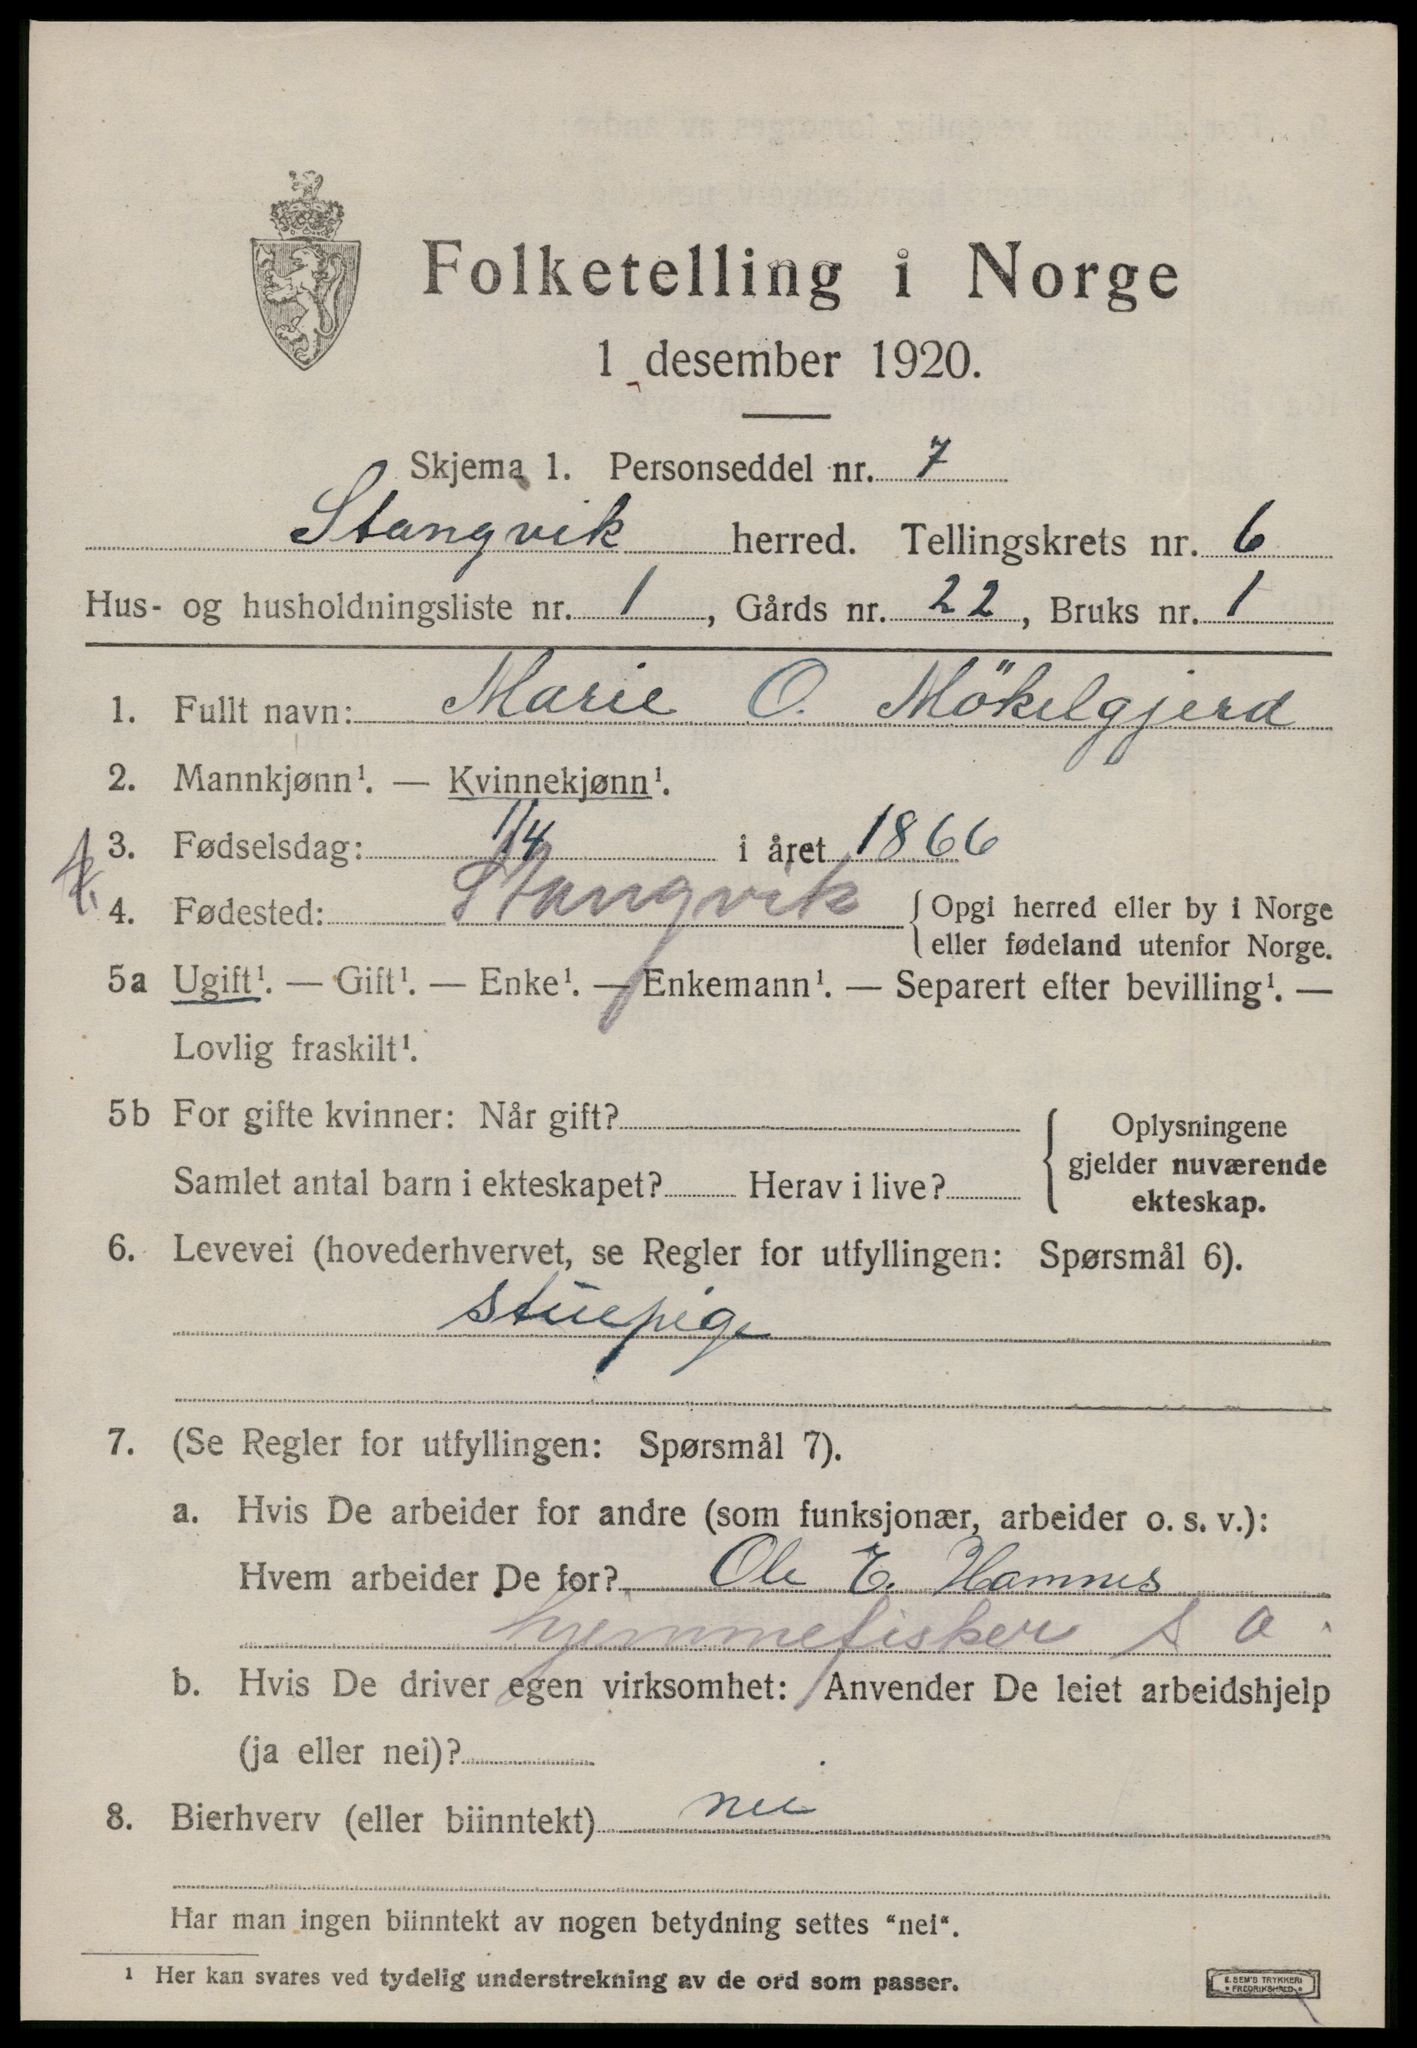 Folketelling i Norge
1 desember 1920.
Skjema 1. Personseddel nr. 7
Stangvik herred. Tellingskrets nr. 6
Hus- og husholdningsliste nr. 1, Gårds nr. 22, Bruks nr. 1
1. Fullt navn: Marie O. Mökelgjerd
2. Mannkjønn¹. — Kvinnekjønn¹.
3. Fødselsdag: 1/4 i året 1866
4. Fødested: Stangvik { Opgi herred eller by i Norge
eller fødeland utenfor Norge.
5a Ugift¹. — Gift¹. — Enke¹. — Enkemann¹. — Separert efter bevilling¹. —
Lovlig fraskilt¹.
5b For gifte kvinner: Når gift?
Samlet antal barn i ekteskapet? Herav i live?
Oplysningene
gjelder nuværende
ekteskap.
6. Levevei (hovederhvervet, se Regler for utfyllingen: Spørsmål 6).
stuepige
7. (Se Regler for utfyllingen: Spørsmål 7).
a. Hvis De arbeider for andre (som funksjonær, arbeider o. s. v.):
Hvem arbeider De for? Ole E. Hamnes
hjemmefisker s a
b. Hvis De driver egen virksomhet: Anvender De leiet arbeidshjelp
(ja eller nei)?
8. Bierhverv (eller biinntekt) nei
Har man ingen biinntekt av nogen betydning settes “nei“.
¹ Her kan svares ved tydelig understrekning av de ord som passer.
E. SEM'S TRYKKERI
* FREDRIKSHALD *